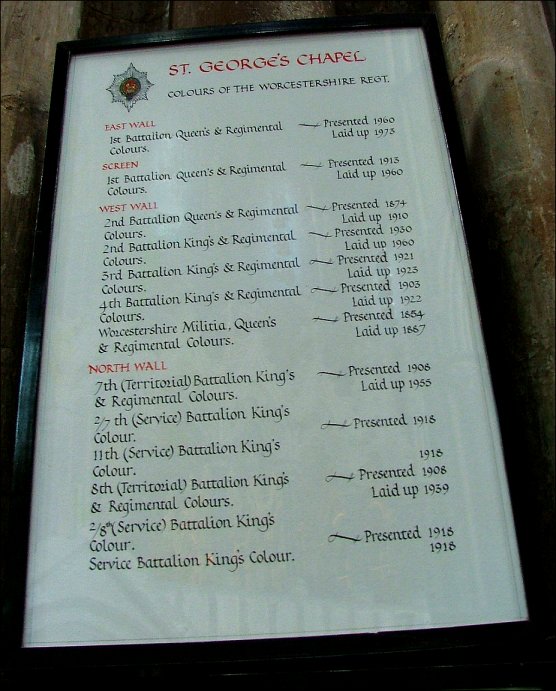 ST. GEORGE'S CHAPEL
COLOURS OF THE WORCESTERSHIRE REGT.
EAST WALL
1st Battalion Queen's & Regimental Presented 1960
Colours. Laid up 1973
SCREEN
1st Battalion Queen's & Regimental Presented 1913
Colours. Laid up 1960
WEST WALL
2nd Battalion Queen's & Regimental Presented 1874
Colours. Laid up 1910
2nd Battalion King's & Regimental Presented 1930
Colours. Laid up 1960
3rd Battalion King's & Regimental Presented 1921
Colours. Laid up 1923
4th Battalion King's & Regimental Presented 1903
Colours. Laid up 1922
Worcestershire Militia, Queen's Presented 1854
& Regimental Colours. Laid up 1887
NORTH WALL
7th (Territorial) Battalion King's Presented 1908
& Regimental Colours. Laid up 1955
2/7 th (Service) Battalion King's
Colour. Presented 1918
11th (Service) Battalion King's
Colour. 1918
8th (Territorial) Battalion King's Presented 1908
& Regimental Colours. Laid up 1939
2/8th (Service) Battalion King's
Colour. Presented 1918
Service Battalion King's Colour. 1918